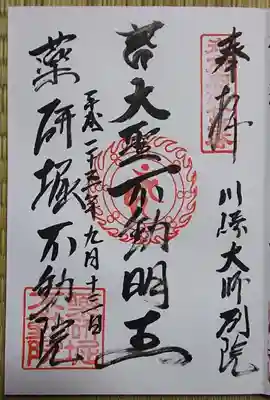 奉拝
川崎大師別院
苔大聖不動明王
平成二十三年九月十二日
薬研堀不動院